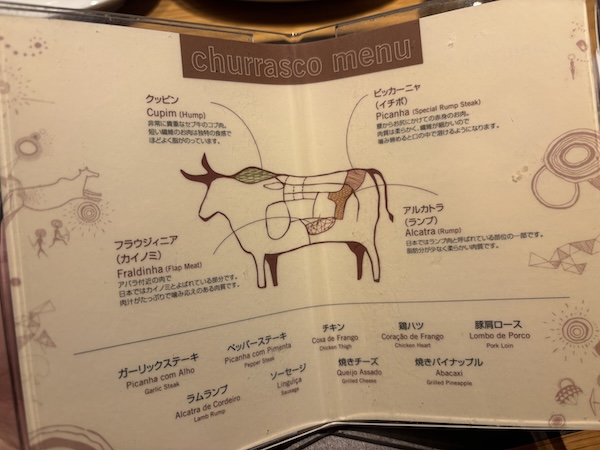 churrasco menu
クッピン
Cupim (Hump)
非常に貴重なセブ牛のコブ肉。
短い繊維のお肉は独特の食感で
ほどよく脂がのっています。
ピッカーニャ
(イチボ)
Picanha (Special Rump Steak)
腰からお尻にかけての赤身のお肉。
肉質は柔らかく、繊維が細かいので
噛み締めると口の中で溶けるようになります。
フラウジィニア
(カイノミ)
Fraldinha (Flap Meat)
アバラ付近の肉で
日本ではカイノミとよばれている部分です。
肉汁がたっぷりで噛み応えのある肉質です。
アルカトラ
(ランプ)
Alcatra (Rump)
日本ではランプ肉と呼ばれている部位の一部です。
脂肪分が少なく柔らかい肉質です。
ガーリックステーキ
Picanha com Alho
Garlic Steak
ペッパーステーキ
Picanha com Pimenta
Pepper Steak
チキン
Coxa de Frango
Chicken Thigh
鶏ハツ
Coração de Frango
Chicken Heart
豚肩ロース
Lombo de Porco
Pork Loin
ラムランプ
Alcatra de Cordeiro
Lamb Rump
ソーセージ
Linguiça
Sausage
焼きチーズ
Queijo Assado
Grilled Cheese
焼きパイナップル
Abacaxi
Grilled Pineapple